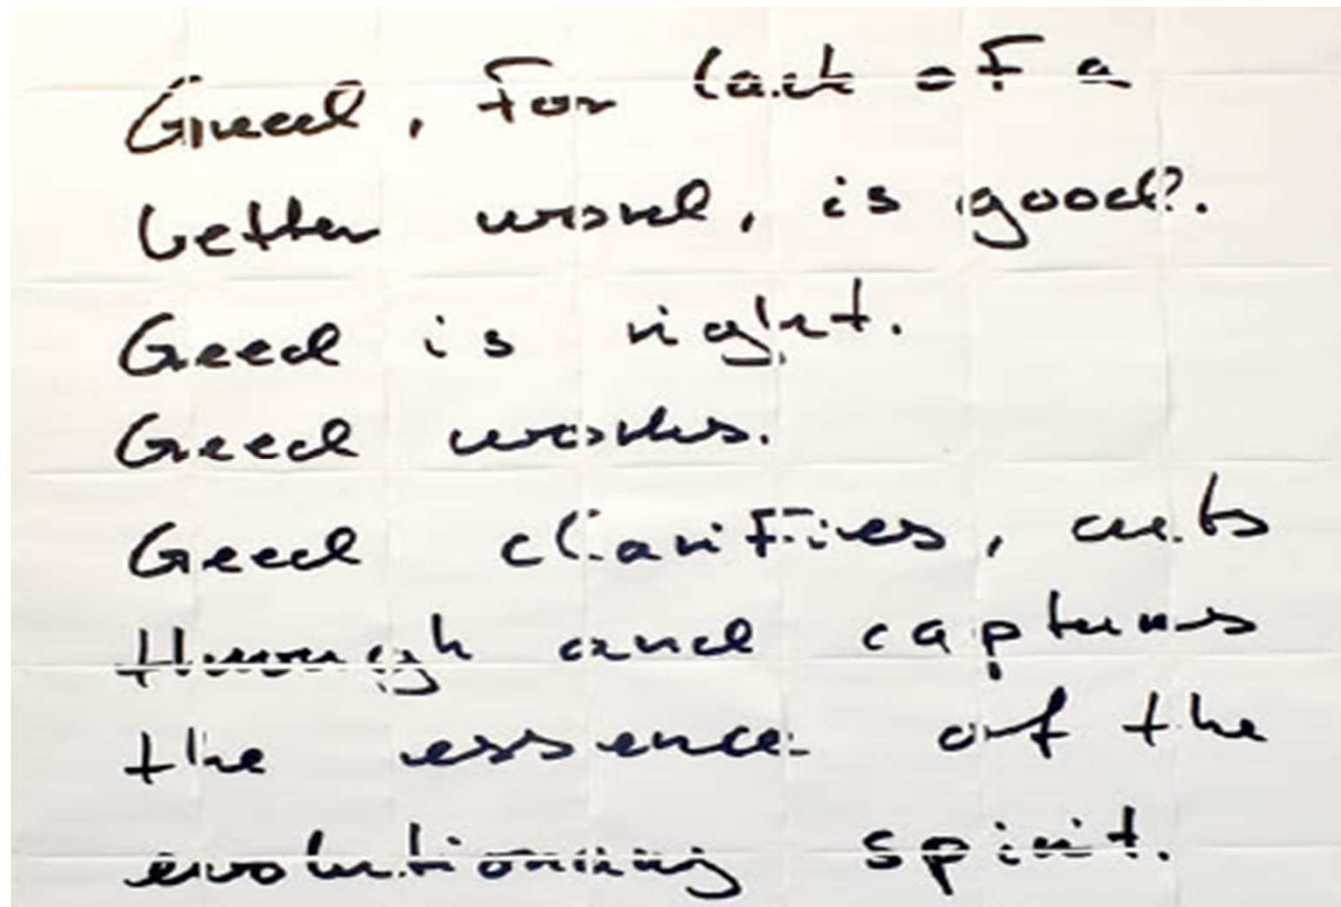 Greed, for lack of a
better word, is good?.
Greed is right.
Greed works.
Greed clarifies, cuts
through and captures
the essence of the
evolutioning spirit.